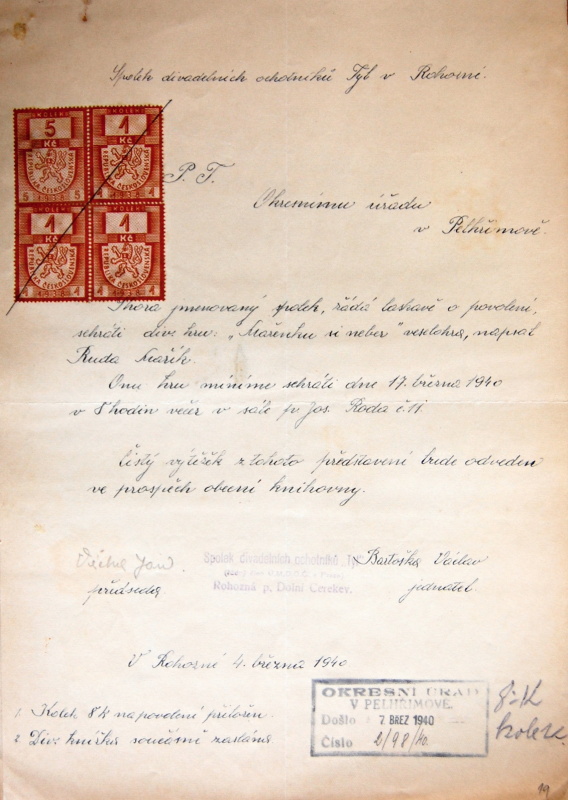 Spolek divadelních ochotníků Tyl v Rohozné.
KOLEK 5 Kč REPUBLIKA ČESKOSLOVENSKÁ 5 1938 5
KOLEK 1 Kč REPUBLIKA ČESKOSLOVENSKÁ 1 1938 1
KOLEK 1 Kč REPUBLIKA ČESKOSLOVENSKÁ 1 1938 1
KOLEK 1 Kč REPUBLIKA ČESKOSLOVENSKÁ 1 1938 1
P. T.
Okresnímu úřadu
v Pelhřimově.
Shora jmenovaný spolek, žádá laskavě o povolení,
sehráti div. hru: „Mařenku si neber" veselohra, napsal
Ruda Mařík.
Onu hru míníme sehráti dne 17. března 1940
v 8 hodin večer v sále p. Jos. Roda č. 11.
Čistý výtěžek z tohoto představení bude odveden
ve prospěch obecní knihovny.
Jan
předseda
Spolek divadelních ochotníků Tyl
Rohozná p. Dolní Cerekev.
Bartoška Václav
jednatel
V Rohozné 4. března 1940
1. Kolek 8 K na povolení přiložen.
2. Div. knížka současně zaslána
OKRESNÍ ÚŘAD
V PELHŘIMOVĚ.
Došlo 7. BŘEZ 1940
Číslo 2/98/40.
8 K
kolek
19